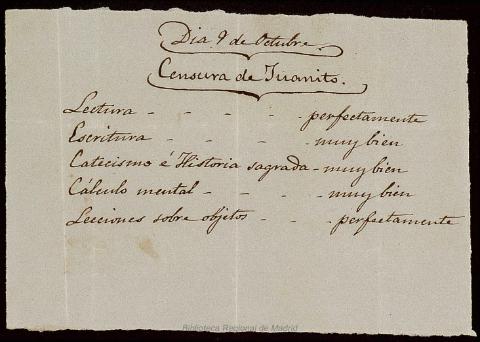 Dia 9 de Octubre.
Censura de Juanito.
Lectura - - - - - perfectamente
Escritura - - - - - muy bien
Catecismo é Historia sagrada - muy bien
Cálculo mental - - - - muy bien
Lecciones sobre objetos - - - perfectamente
Biblioteca Regional de Madrid